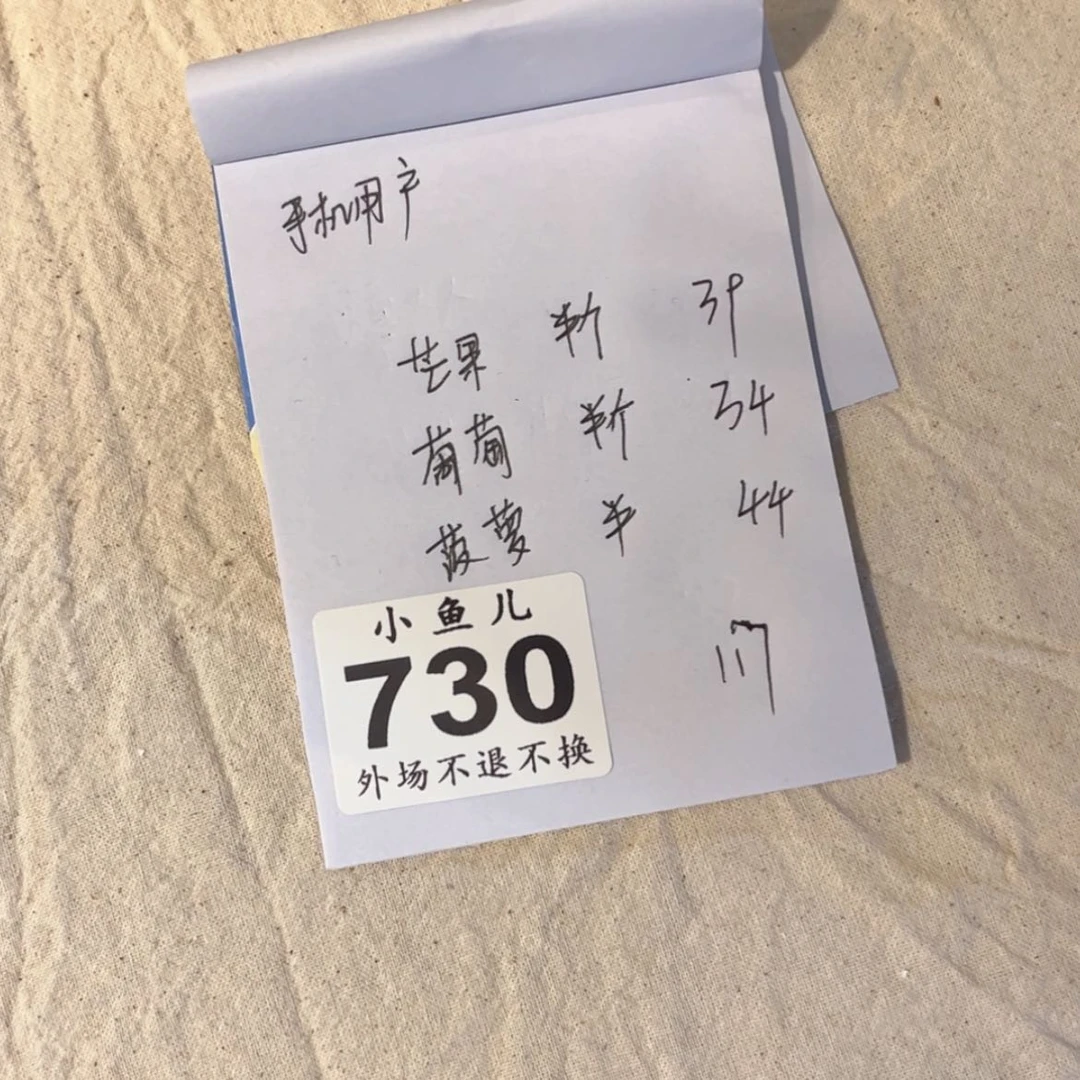 手机用户
芒果 半斤 39
葡萄 半斤 34
菠萝 半 44
117
小鱼儿
730
外场不退不换